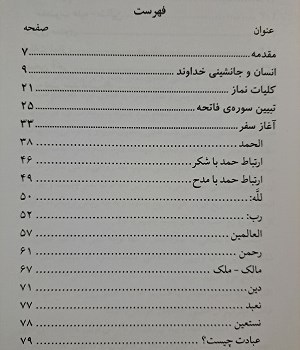 فهرست
عنوان صفحه
مقدمه ۷
انسان و جانشینی خداوند ۹
کلیات نماز ۲۱
تبیین سوره‌ی فاتحه ۲۵
آغاز سفر ۳۳
الحمد ۳۸
ارتباط حمد با شکر ۴۶
ارتباط حمد با مدح ۴۹
للَّه: ۵۰
رب: ۵۲
العالمین ۵۷
رحمن ۶۱
مالک - ملک ۶۷
دین ۷۱
نعبد ۷۷
نستعین ۷۸
عبادت چیست؟ ۷۹